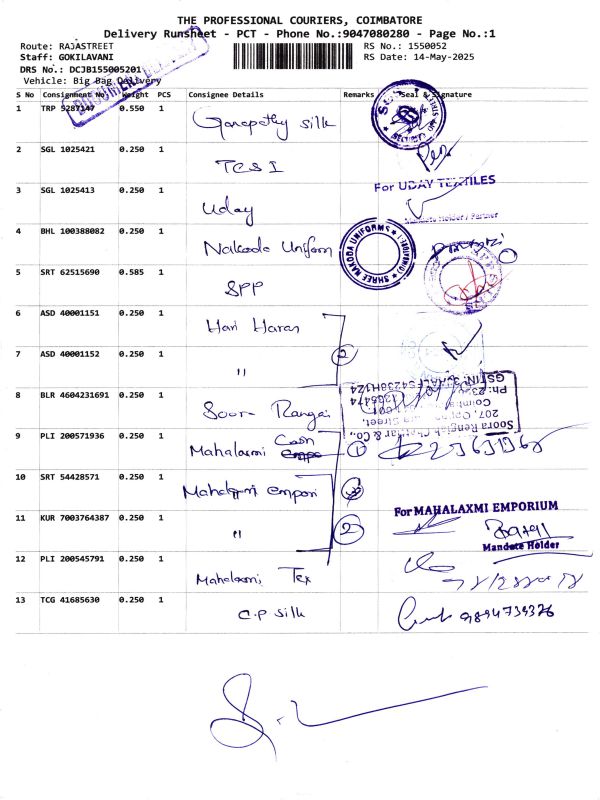 THE PROFESSIONAL COURIERS, COIMBATORE
Delivery Runsheet - PCT - Phone No.:9047080280 - Page No.:1
Route: RAJASTREET
RS No.: 1550052
Staff: GOKILAVANI
RS Date: 14-May-2025
DRS No.: DCJB155005201
Vehicle: Big Bag Delivery
S No Consignment No Weight PCS Consignee Details Remarks Seal & Signature
1 TRP 5287147 0.550 1 Ganapathy silk
2 SGL 1025421 0.250 1 TCS I
For UDAY TEXTILES
3 SGL 1025413 0.250 1 Uday
Mandate Holder / Partner
4 BHL 100388082 0.250 1 Nakoda Uniform
SHREE NAKODA UNIFORMS
5 SRT 62515690 0.585 1 SPP
6 ASD 40001151 0.250 1 Hari Haran
7 ASD 40001152 0.250 1 " 2
8 BLR 4604231691 0.250 1 Soora Rangai
Soora Rengiah Chettiar & Co.,
207, Oppana Street,
9 PLI 200571936 0.250 1 Mahalaxmi Cash 1
10 SRT 54428571 0.250 1 Mahalaxmi empori
For MAHALAXMI EMPORIUM
11 KUR 7003764387 0.250 1 " 2
Mandate Holder
12 PLI 200545791 0.250 1 Mahalaxmi Tex
13 TCG 41685630 0.250 1 C.P silk 9894739326